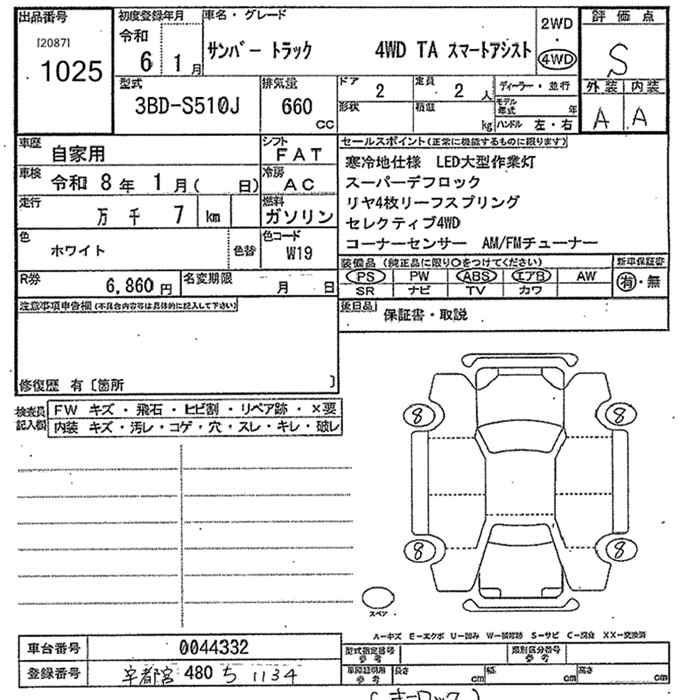 出品番号
[2087]
1025
初度登録年月
令和
6 1月
車名・グレード
サンバー トラック 4WD TA スマートアシスト
2WD
・
4WD
評価点
S
外装 内装
A A
型式
3BD-S510J
排気量
660
cc
ドア 2
定員 2 人
形状
積載 kg
ディーラー・並行
モデル年式 年
ハンドル 左・右
車歴
自家用
シフト
FAT
車検
令和 8年 1月( 日)
冷房
AC
走行
万 千 7 km
燃料
ガソリン
色
ホワイト
色替
色コード
W19
R券
6,860円
名変期限
月 日
セールスポイント(正常に機能するものに限ります)
寒冷地仕様 LED大型作業灯
スーパーデフロック
リヤ4枚リーフスプリング
セレクティブ4WD
コーナーセンサー AM/FMチューナー
装備品(純正品に限り○をつけてください)
新車保証書
PS PW ABS エアB AW
SR ナビ TV カワ
有・無
注意事項申告欄(不具合内容等は具体的に記入して下さい)
後日品
保証書・取説
修復歴 有〔箇所 〕
検査員記入欄
FW キズ・飛石・ヒビ割・リペア跡・×要
内装 キズ・汚レ・コゲ・穴・スレ・キレ・破レ
8 8
8 8
スペア
A-キズ E-エクボ U-凹み W-補修跡 S-サビ C-腐食 XX-交換済
車台番号 0044332
登録番号 宇都宮 480 ち 1134
型式指定番号参考
類別区分番号参考
車庫証明用参考
長さ cm
幅 cm
高さ cm
(キーロック)